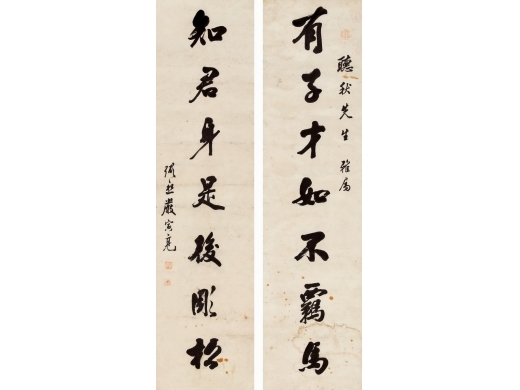 有子才如不羈馬
聽秋先生 雅屬
知君身是後彫松
弼臣嚴寅亮